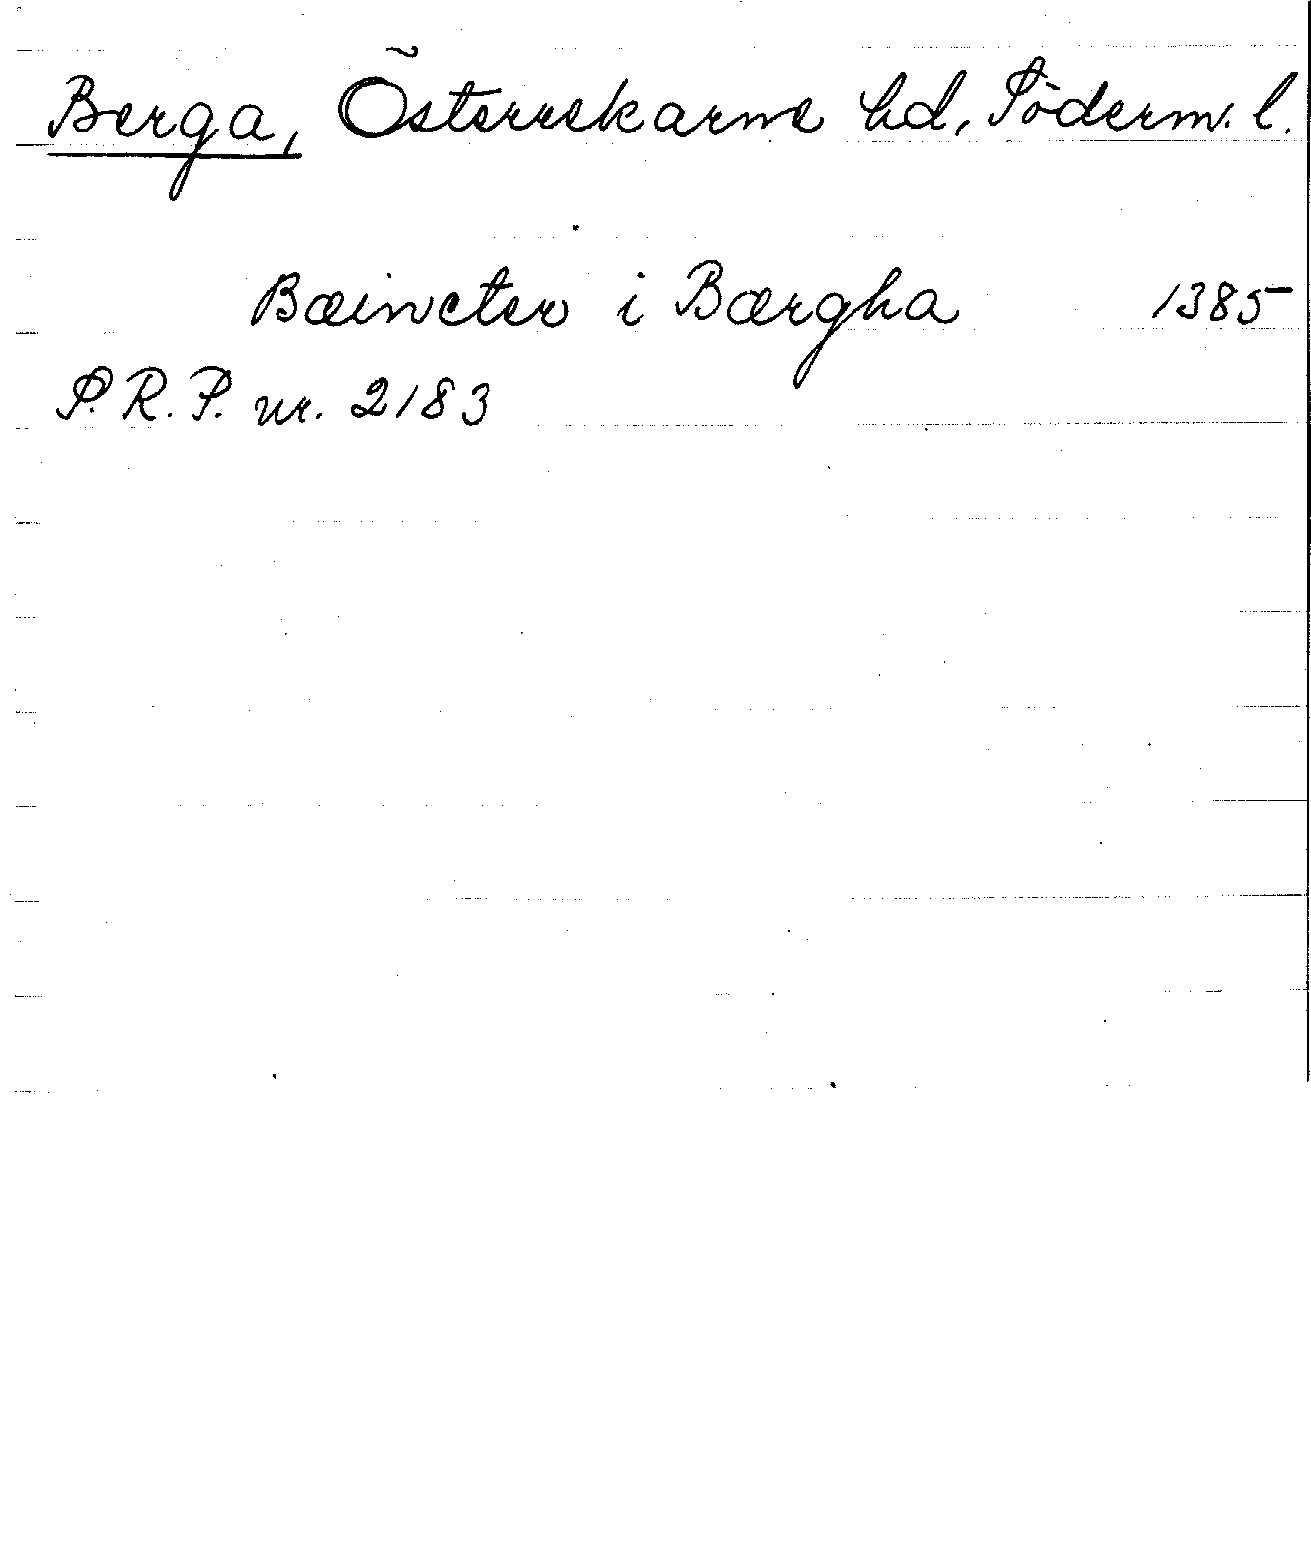 Berga, Österrekarne hd, Söderm. l.
Bæincter i Bærgha 1385
S.R.P. nr. 2183